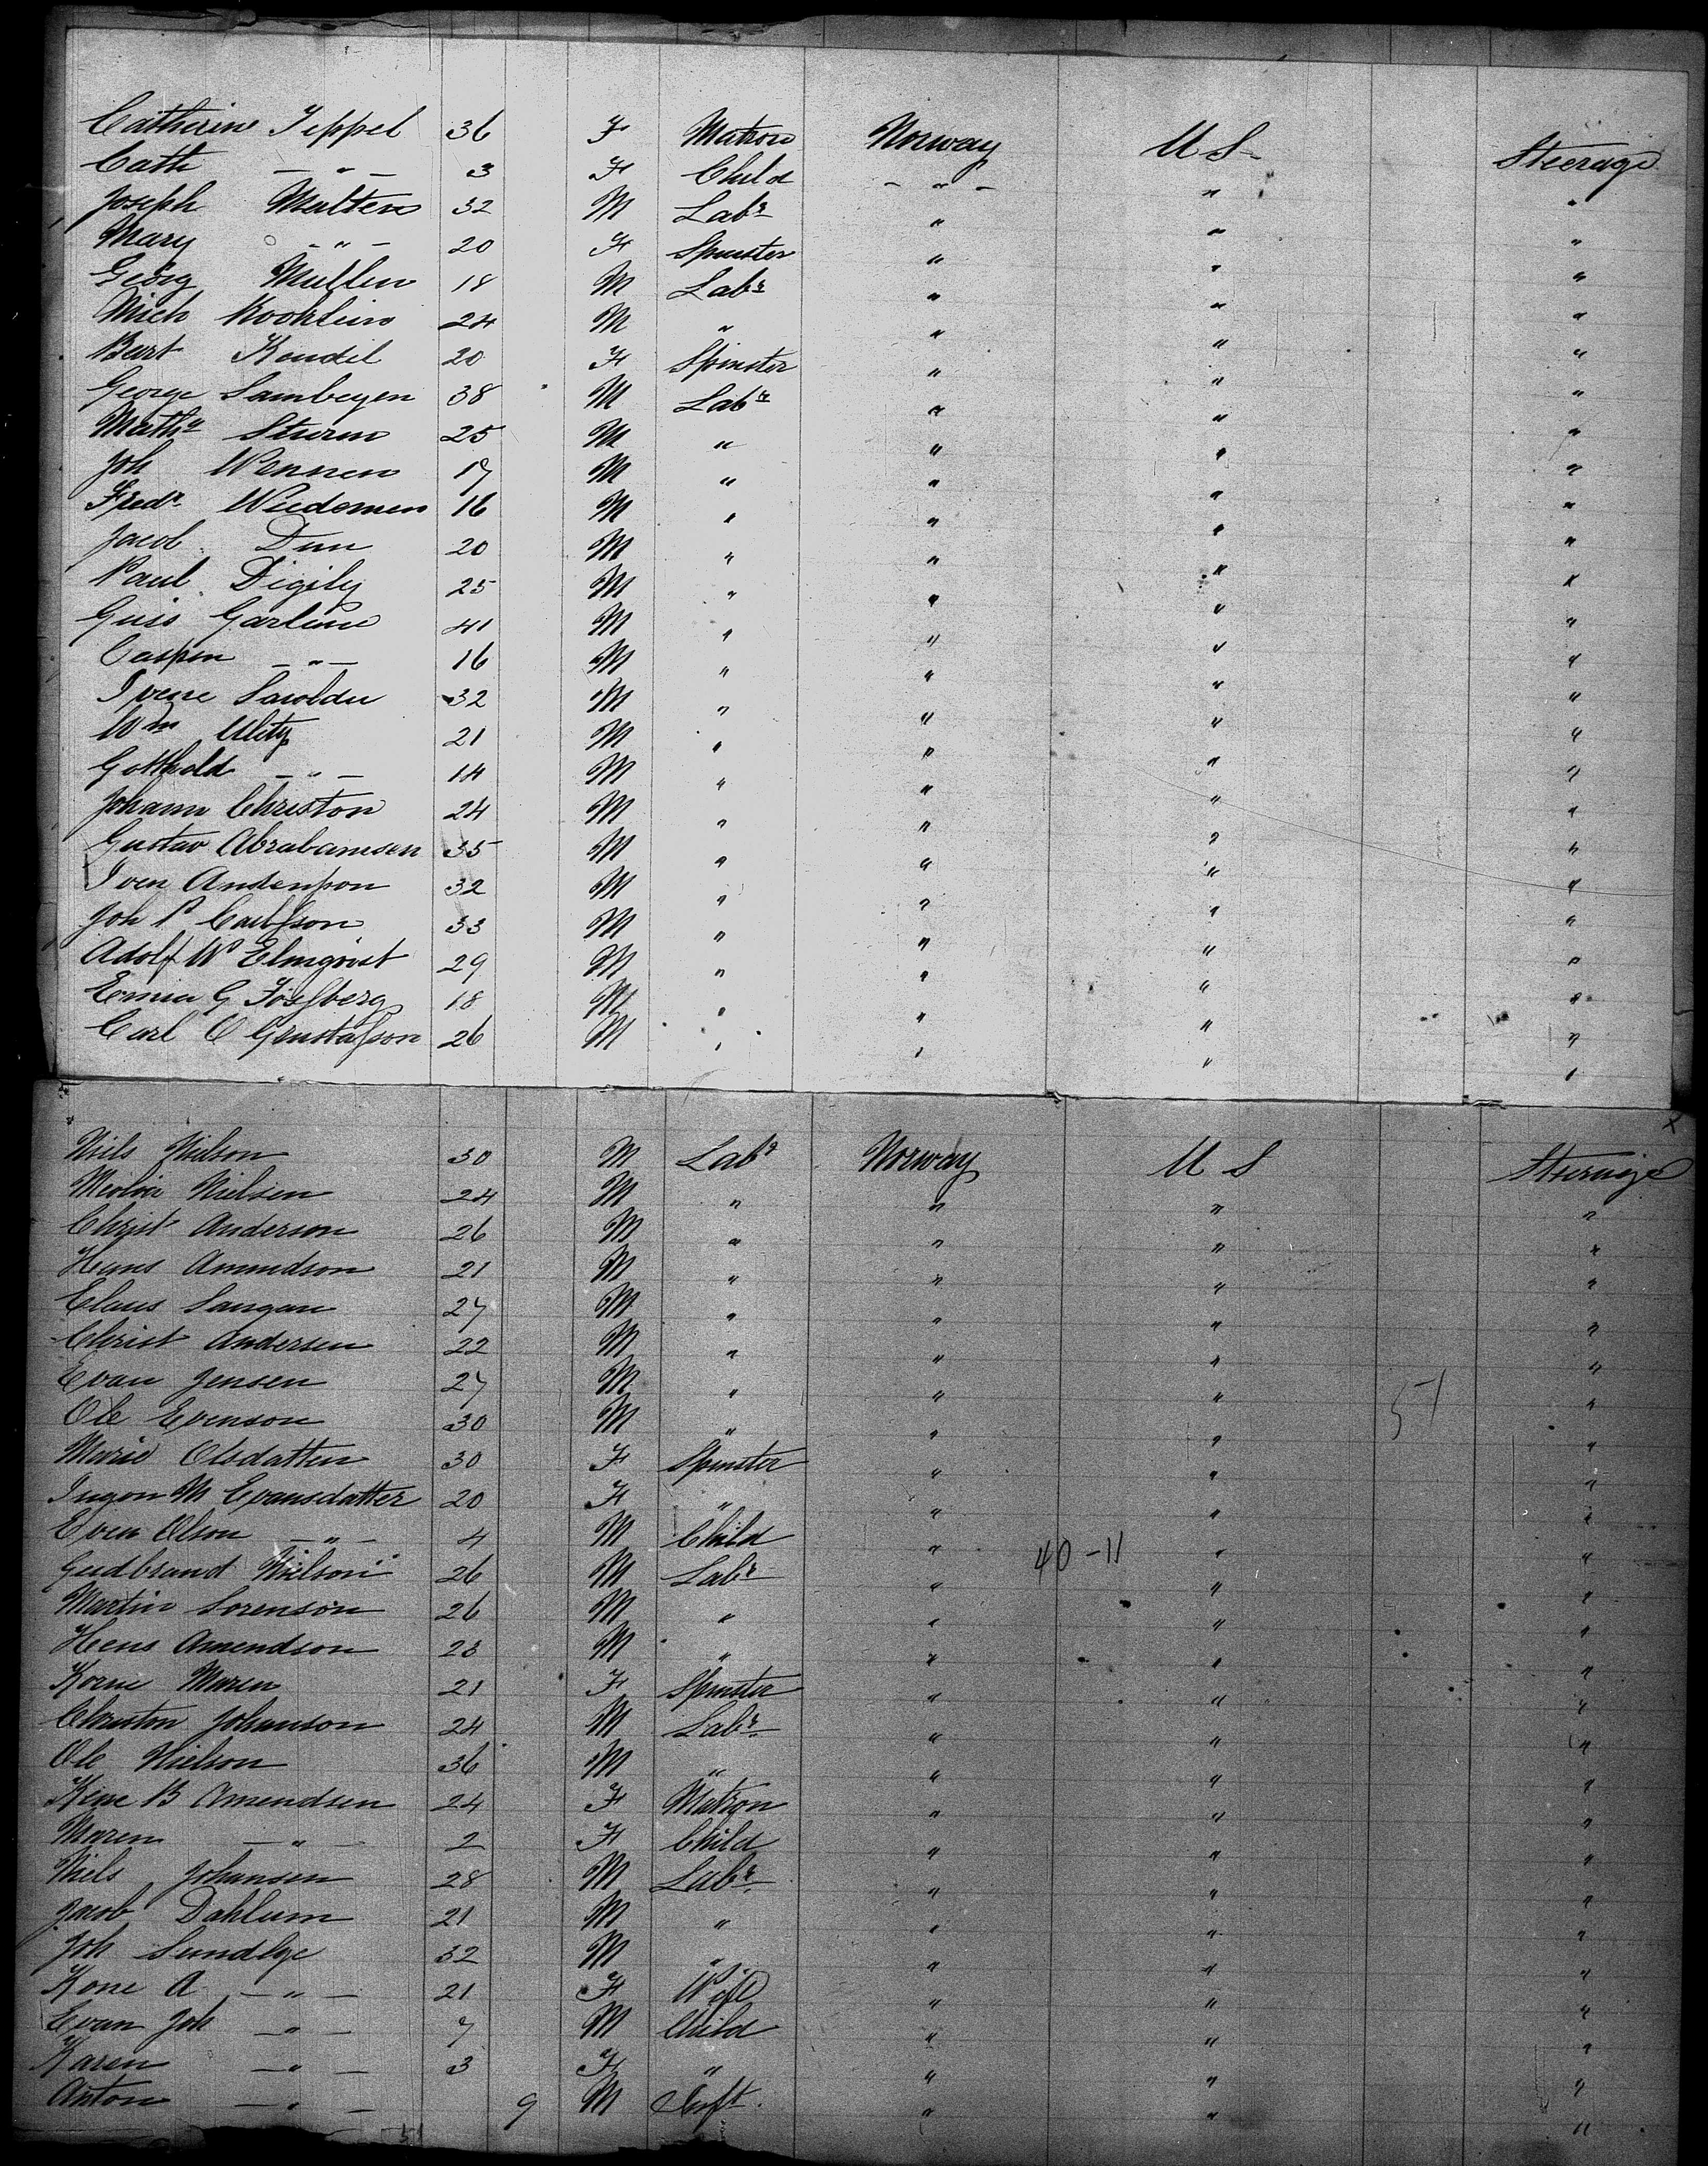 Catherine Teppel 36 F Matron Norway U S Steerage
Cath — " — 3 F Child — " — " "
Joseph Multen 32 M Labr " " "
Mary — " — 20 F Spinster " " "
Georg Mullen 18 M Labr " " "
Mich Kochlein 24 M " " " "
Bart Koudil 20 F Spinster " " "
George Sambeyen 38 M Labr " " "
Maths Sturm 25 M " " " "
Joh Wennen 17 M " " " "
Fredk Wiedemen 16 M " " " "
Jacob Dun 20 M " " " "
Paul Digily 25 M " " " "
Guis Garline 41 M " " " "
Caspen — " — 16 M " " " "
Ivene 32 M " " " "
Wm Ulity 21 M " " " "
Gotthold — " — 14 M " " " "
Johann Christon 24 M " " " "
Gustav Abrahamsen 35 M " " " "
Iven Andenson 32 M " " " "
Joh P Carlsson 33 M " " " "
Adolf W Elmqvist 29 M " " " "
Emia G Fossberg 18 M " " " "
Carl O Gustafson 26 M " " " "
Niels Nielson 30 M Labr Norway U S Steerage
Nielsen 24 M " " " "
Christ Anderson 26 M " " " "
Hans Amundson 21 M " " " "
Claus Langan 27 M " " " "
Christ Andersen 22 M " " " "
Evan Jensen 27 M " " " "
Ole Evenson 30 M " " " "
51
Marie Olsdatten 30 F Spinster " " "
Ingon M Evansdatter 20 F " " " "
Even Olson — " — 4 M Child " " "
40-11
Gudbrand Nielson 26 M Labr " " "
Martin Sorenson 26 M " " " "
Hens Amendson 23 M " " " "
Korne Maren 21 F Spinster " " "
Christon Johanson 24 M Labr " " "
Ole Nielson 36 M " " " "
Kene B Amendsen 24 F Matron " " "
Maren — " — 2 F Child " " "
Niels Johansen 28 M Labr " " "
Jacob Dahlum 21 M " " " "
Joh Sundlye 32 M " " " "
Kone A — " — 21 F Wife " " "
Evan Joh — " — 7 M Child " " "
Karen — " — 3 F " " " "
Anton — " — 9 M Inft " " "